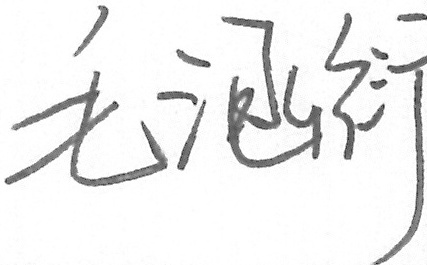 毛涵衍